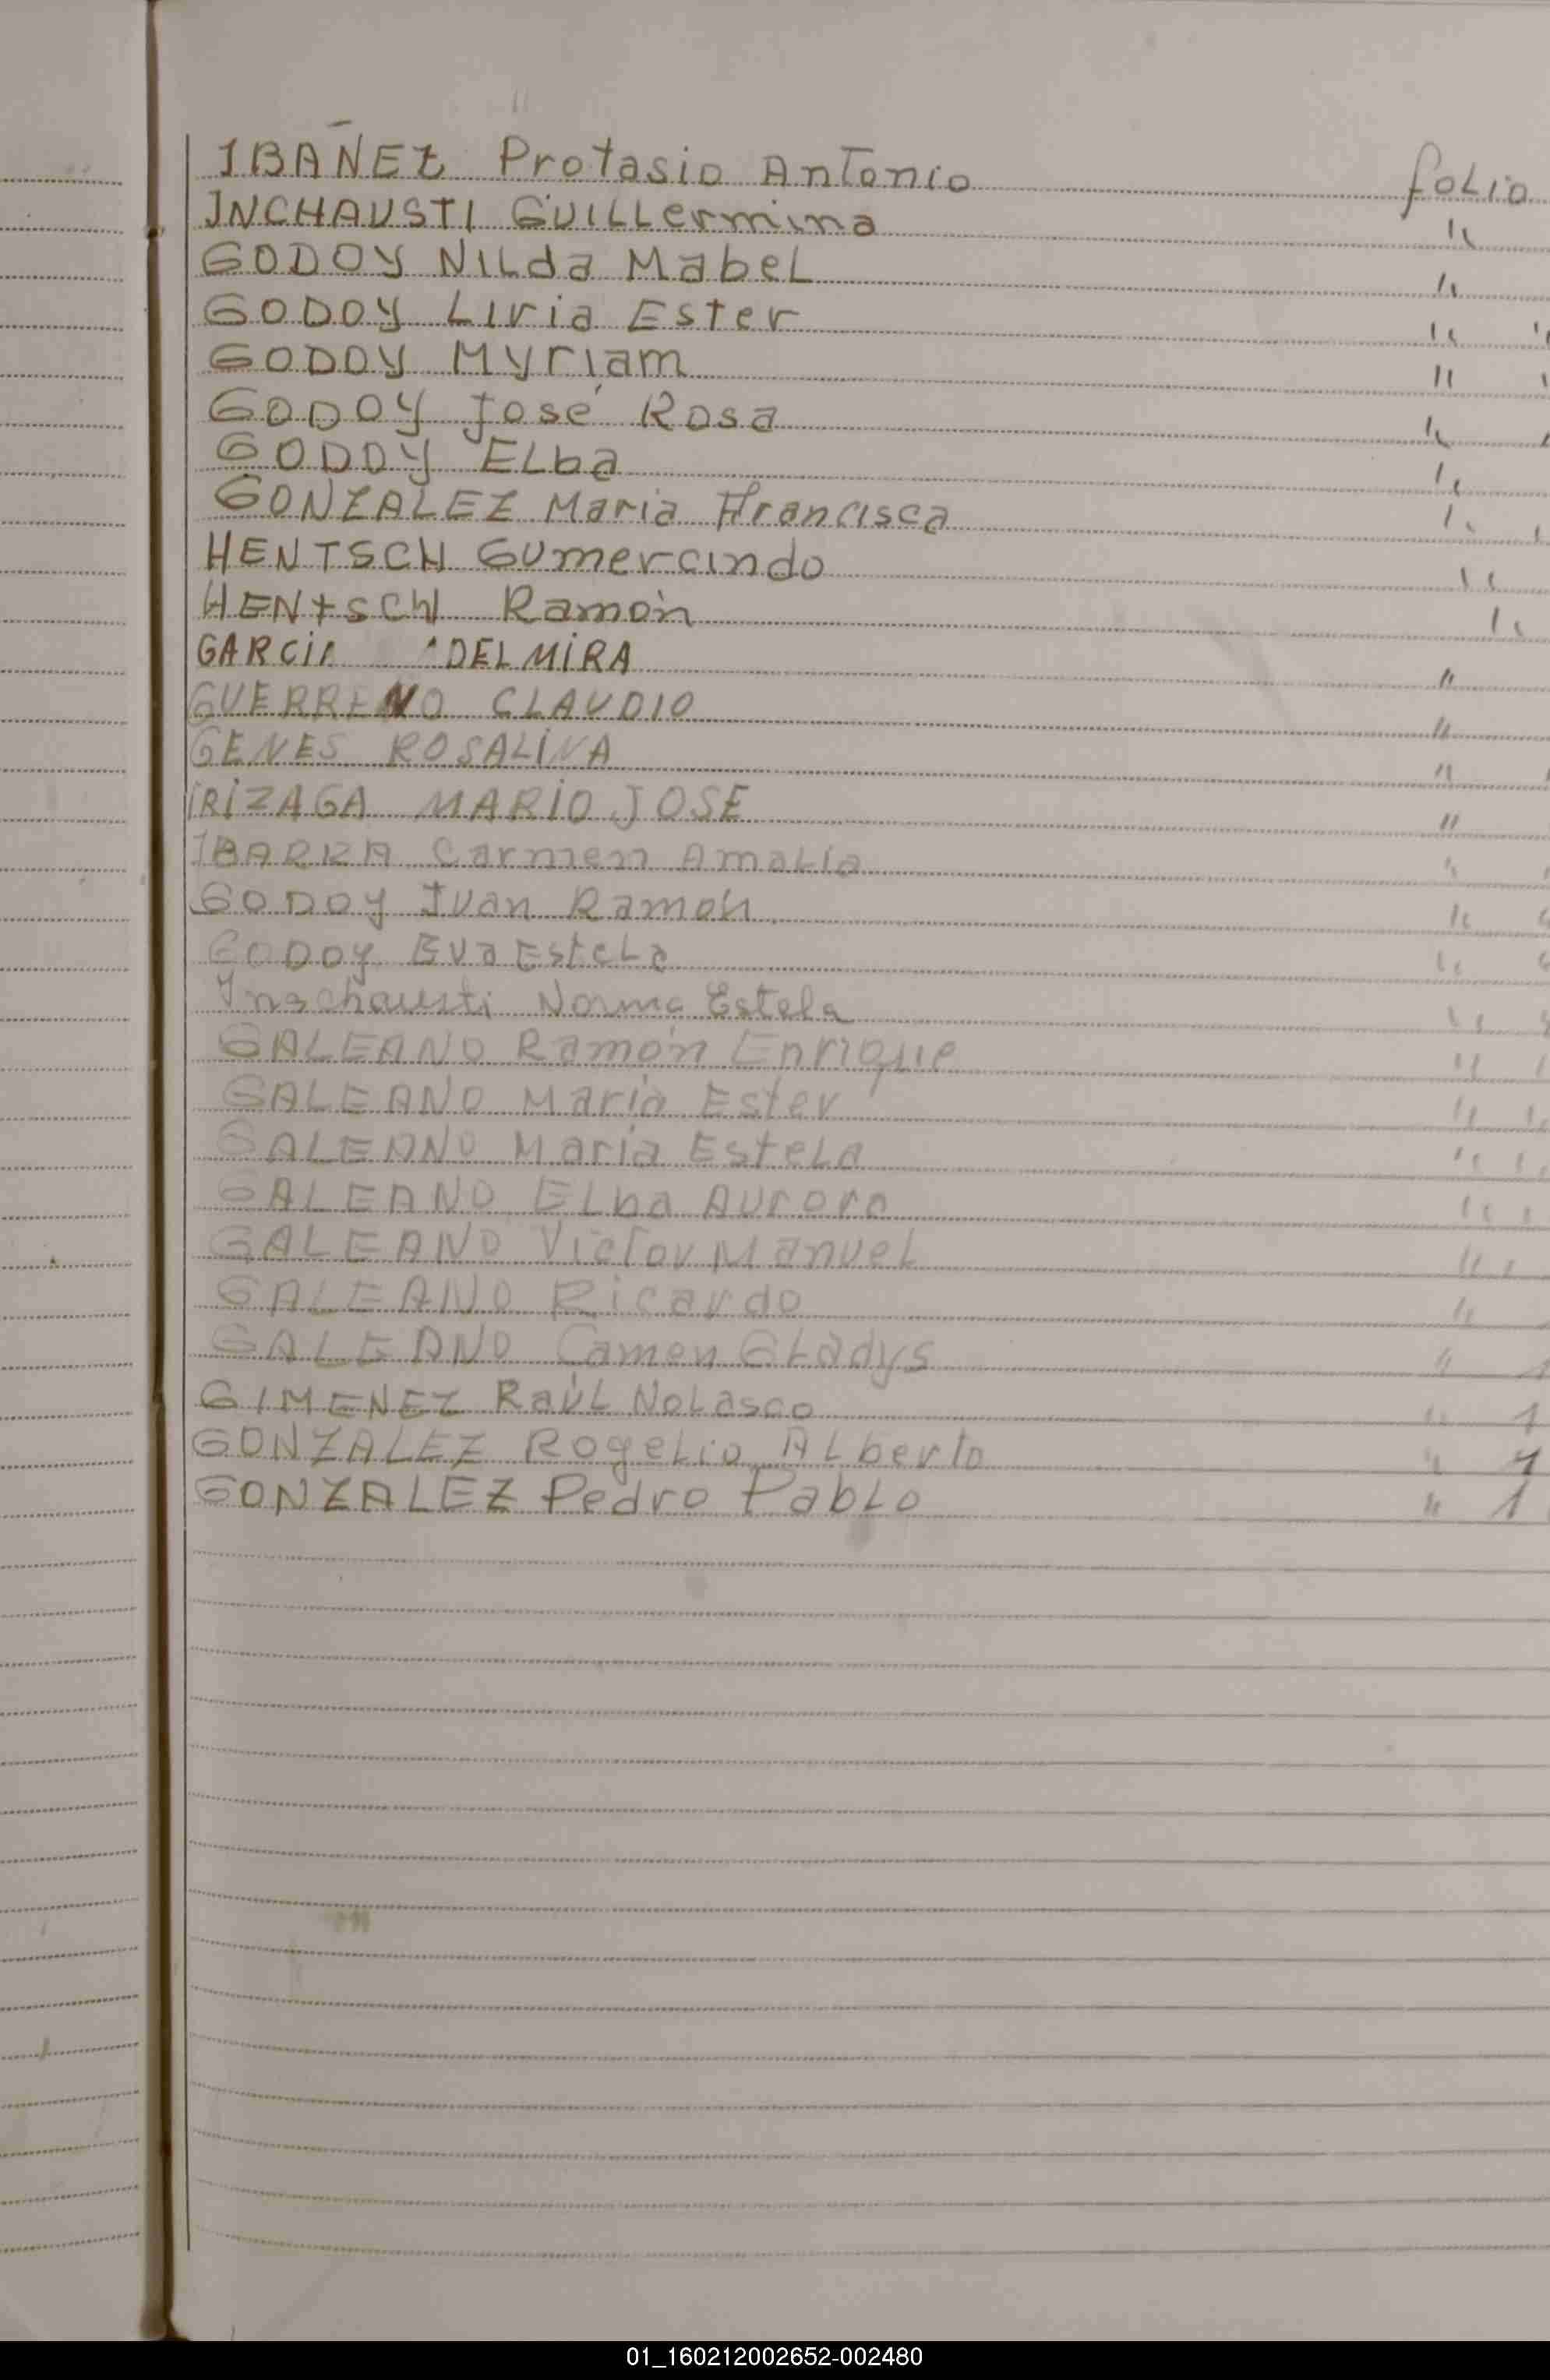 IBAÑEZ Protasio Antonio folio
INCHAUSTI GUILLermina "
GODOY NILda MabeL "
GODOY Liria Ester "
GODOY Myriam "
GODOY José Rosa "
GODOY ELba "
GONZALEZ Maria Francisca "
HENTSCH Gumercindo "
HENtSCH Ramón "
GARCiA DELMiRA "
GUERRENO CLAUDIO "
GENES ROSALiNA "
iRiZAGA MARiO JOSE "
IBARRA Carmen AmaLia "
GODOY Juan Ramon "
GODOY Eva EsteLa "
Inschausti Norma Estela "
GALEANO Ramón Enrique "
GALEANO Maria Ester "
GALEANO Maria EsteLa "
GALEANO ELba Aurora "
GALEANO Victor ManueL "
GALEANO Ricardo "
GALEANO Camen GLadys "
GIMENEZ RaúL NoLasco " 1
GONZALEZ RogeLio ALberto " 1
GONZALEZ Pedro PabLo " 1
01_160212002652-002480